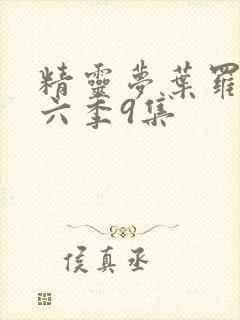 精靈夢葉羅
六季9集
侯真丞